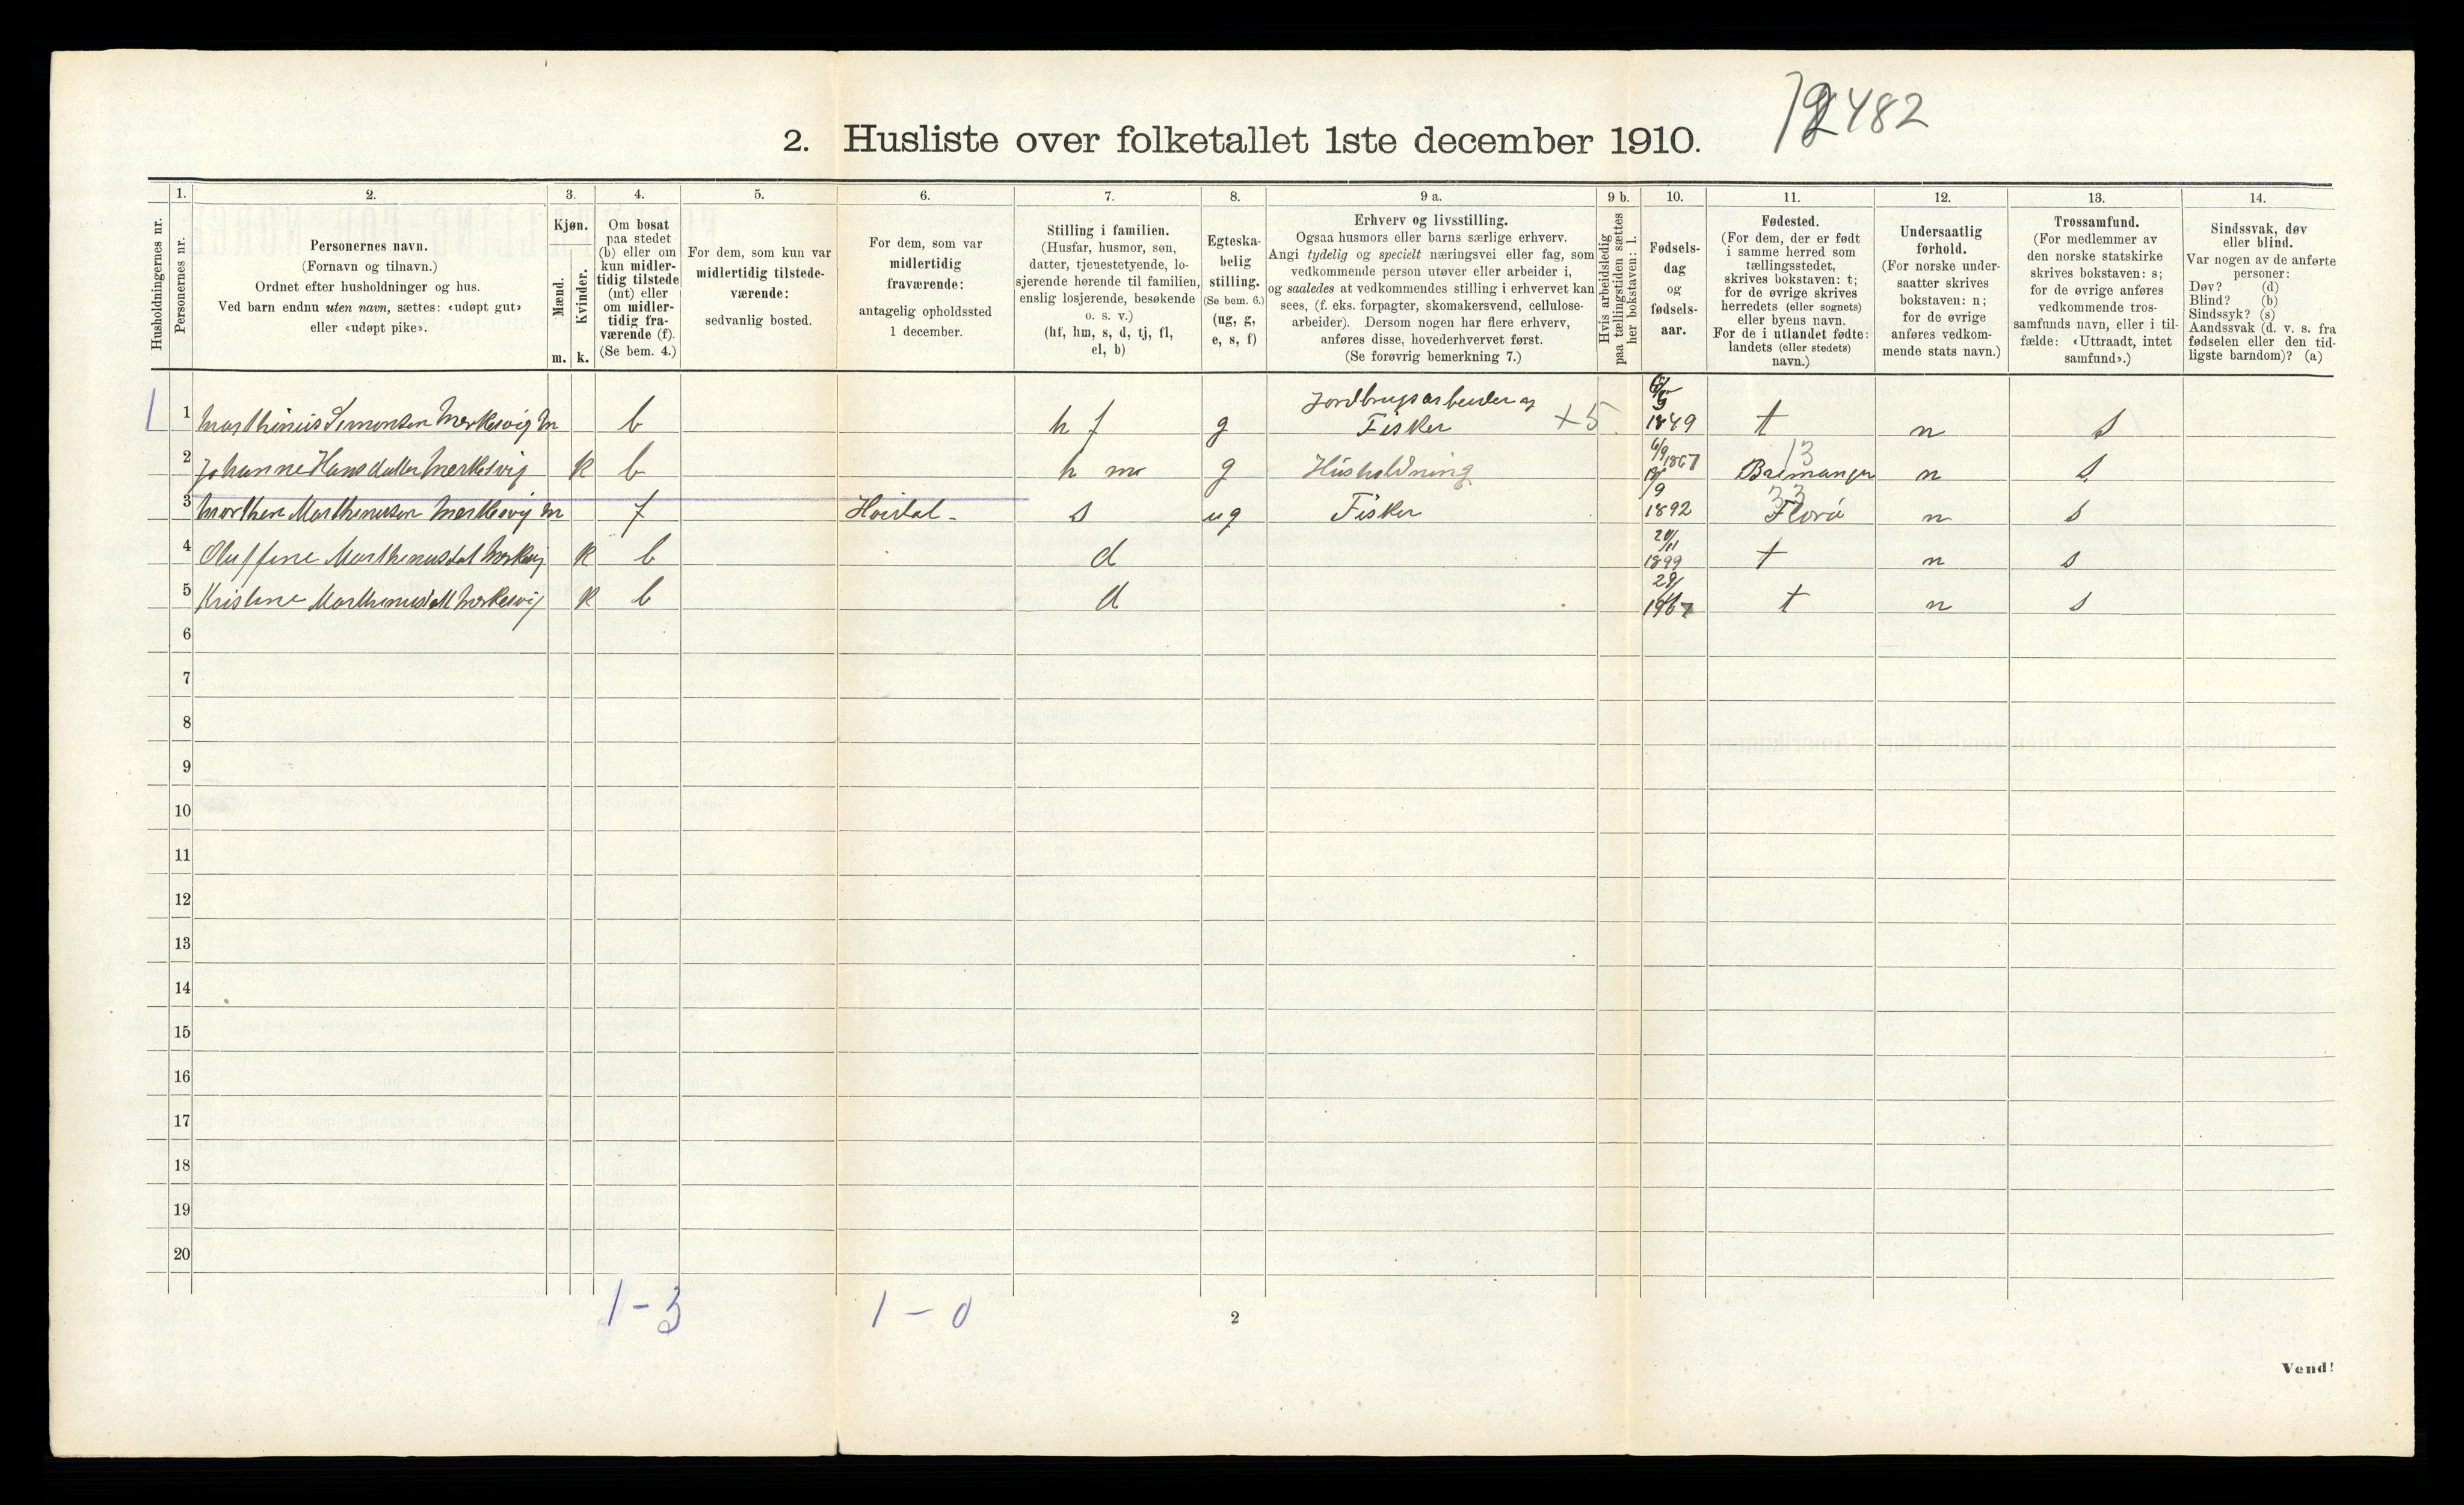 2. Husliste over folketallet 1ste december 1910.
482
Husholdningernes nr.
1.
Personernes nr.
2.
Personernes navn.
(Fornavn og tilnavn.)
Ordnet efter husholdninger og hus.
Ved barn endnu uten navn, sættes: «udøpt gut»
eller «udøpt pike».
3.
Kjøn.
Mænd.
Kvinder.
m. k.
4.
Om bosat
paa stedet
(b) eller om
kun midler-
tidig tilstede
(mt) eller
om midler-
tidig fra-
værende (f).
(Se bem. 4.)
5.
For dem, som kun var
midlertidig tilstede-
værende:
sedvanlig bosted.
6.
For dem, som var
midlertidig
fraværende:
antagelig opholdssted
1 december.
7.
Stilling i familien.
(Husfar, husmor, søn,
datter, tjenestetyende, lo-
sjerende hørende til familien,
enslig losjerende, besøkende
o. s. v.)
(hf, hm, s, d, tj, fl,
el, b)
8.
Egteska-
belig
stilling.
(Se bem. 6.)
(ug, g,
e, s, f)
9 a.
Erhverv og livsstilling.
Ogsaa husmors eller barns særlige erhverv.
Angi tydelig og specielt næringsvei eller fag, som
vedkommende person utøver eller arbeider i,
og saaledes at vedkommendes stilling i erhvervet kan
sees, (f. eks. forpagter, skomakersvend, cellulose-
arbeider). Dersom nogen har flere erhverv,
anføres disse, hovederhvervet først.
(Se forøvrig bemerkning 7.)
9 b.
Hvis arbeidsledig
paa tællingstiden sættes
her bokstaven: l.
10.
Fødsels-
dag
og
fødsels-
aar.
11.
Fødested.
(For dem, der er født
i samme herred som
tællingsstedet,
skrives bokstaven: t;
for de øvrige skrives
herredets (eller sognets)
eller byens navn.
For de i utlandet fødte:
landets (eller stedets)
navn.)
12.
Undersaatlig
forhold.
(For norske under-
saatter skrives
bokstaven: n;
for de øvrige
anføres vedkom-
mende stats navn.)
13.
Trossamfund.
(For medlemmer av
den norske statskirke
skrives bokstaven: s;
for de øvrige anføres
vedkommende tros-
samfunds navn, eller i til-
fælde: «Uttraadt, intet
samfund».)
14.
Sindssvak, døv
eller blind.
Var nogen av de anførte
personer:
Døv? (d)
Blind? (b)
Sindssyk? (s)
Aandssvak (d. v. s. fra
fødselen eller den tid-
ligste barndom)? (a)
1 Marthinius Simonsen Merkesvig m b h f g Jordbrugsarbeider og Fisker +5 1849 t n s
2 Johanne Hansdatter Merkesvig k b h m g Husholdning 6/9 1867 13 Bremanger n s
3 Morthen Marthinussen Merkesvig m f s ug Fisker 1892 33 Florø n s
4 Oluffine Marthinusdat Merkesvig k b d 1899 t n s
5 Kristine Marthinusdatt Merkesvig k b d t n s
6
7
8
9
10
11
12
13
14
15
16
17
18
19
20
1 - 3 1 - 0
2
Vend!